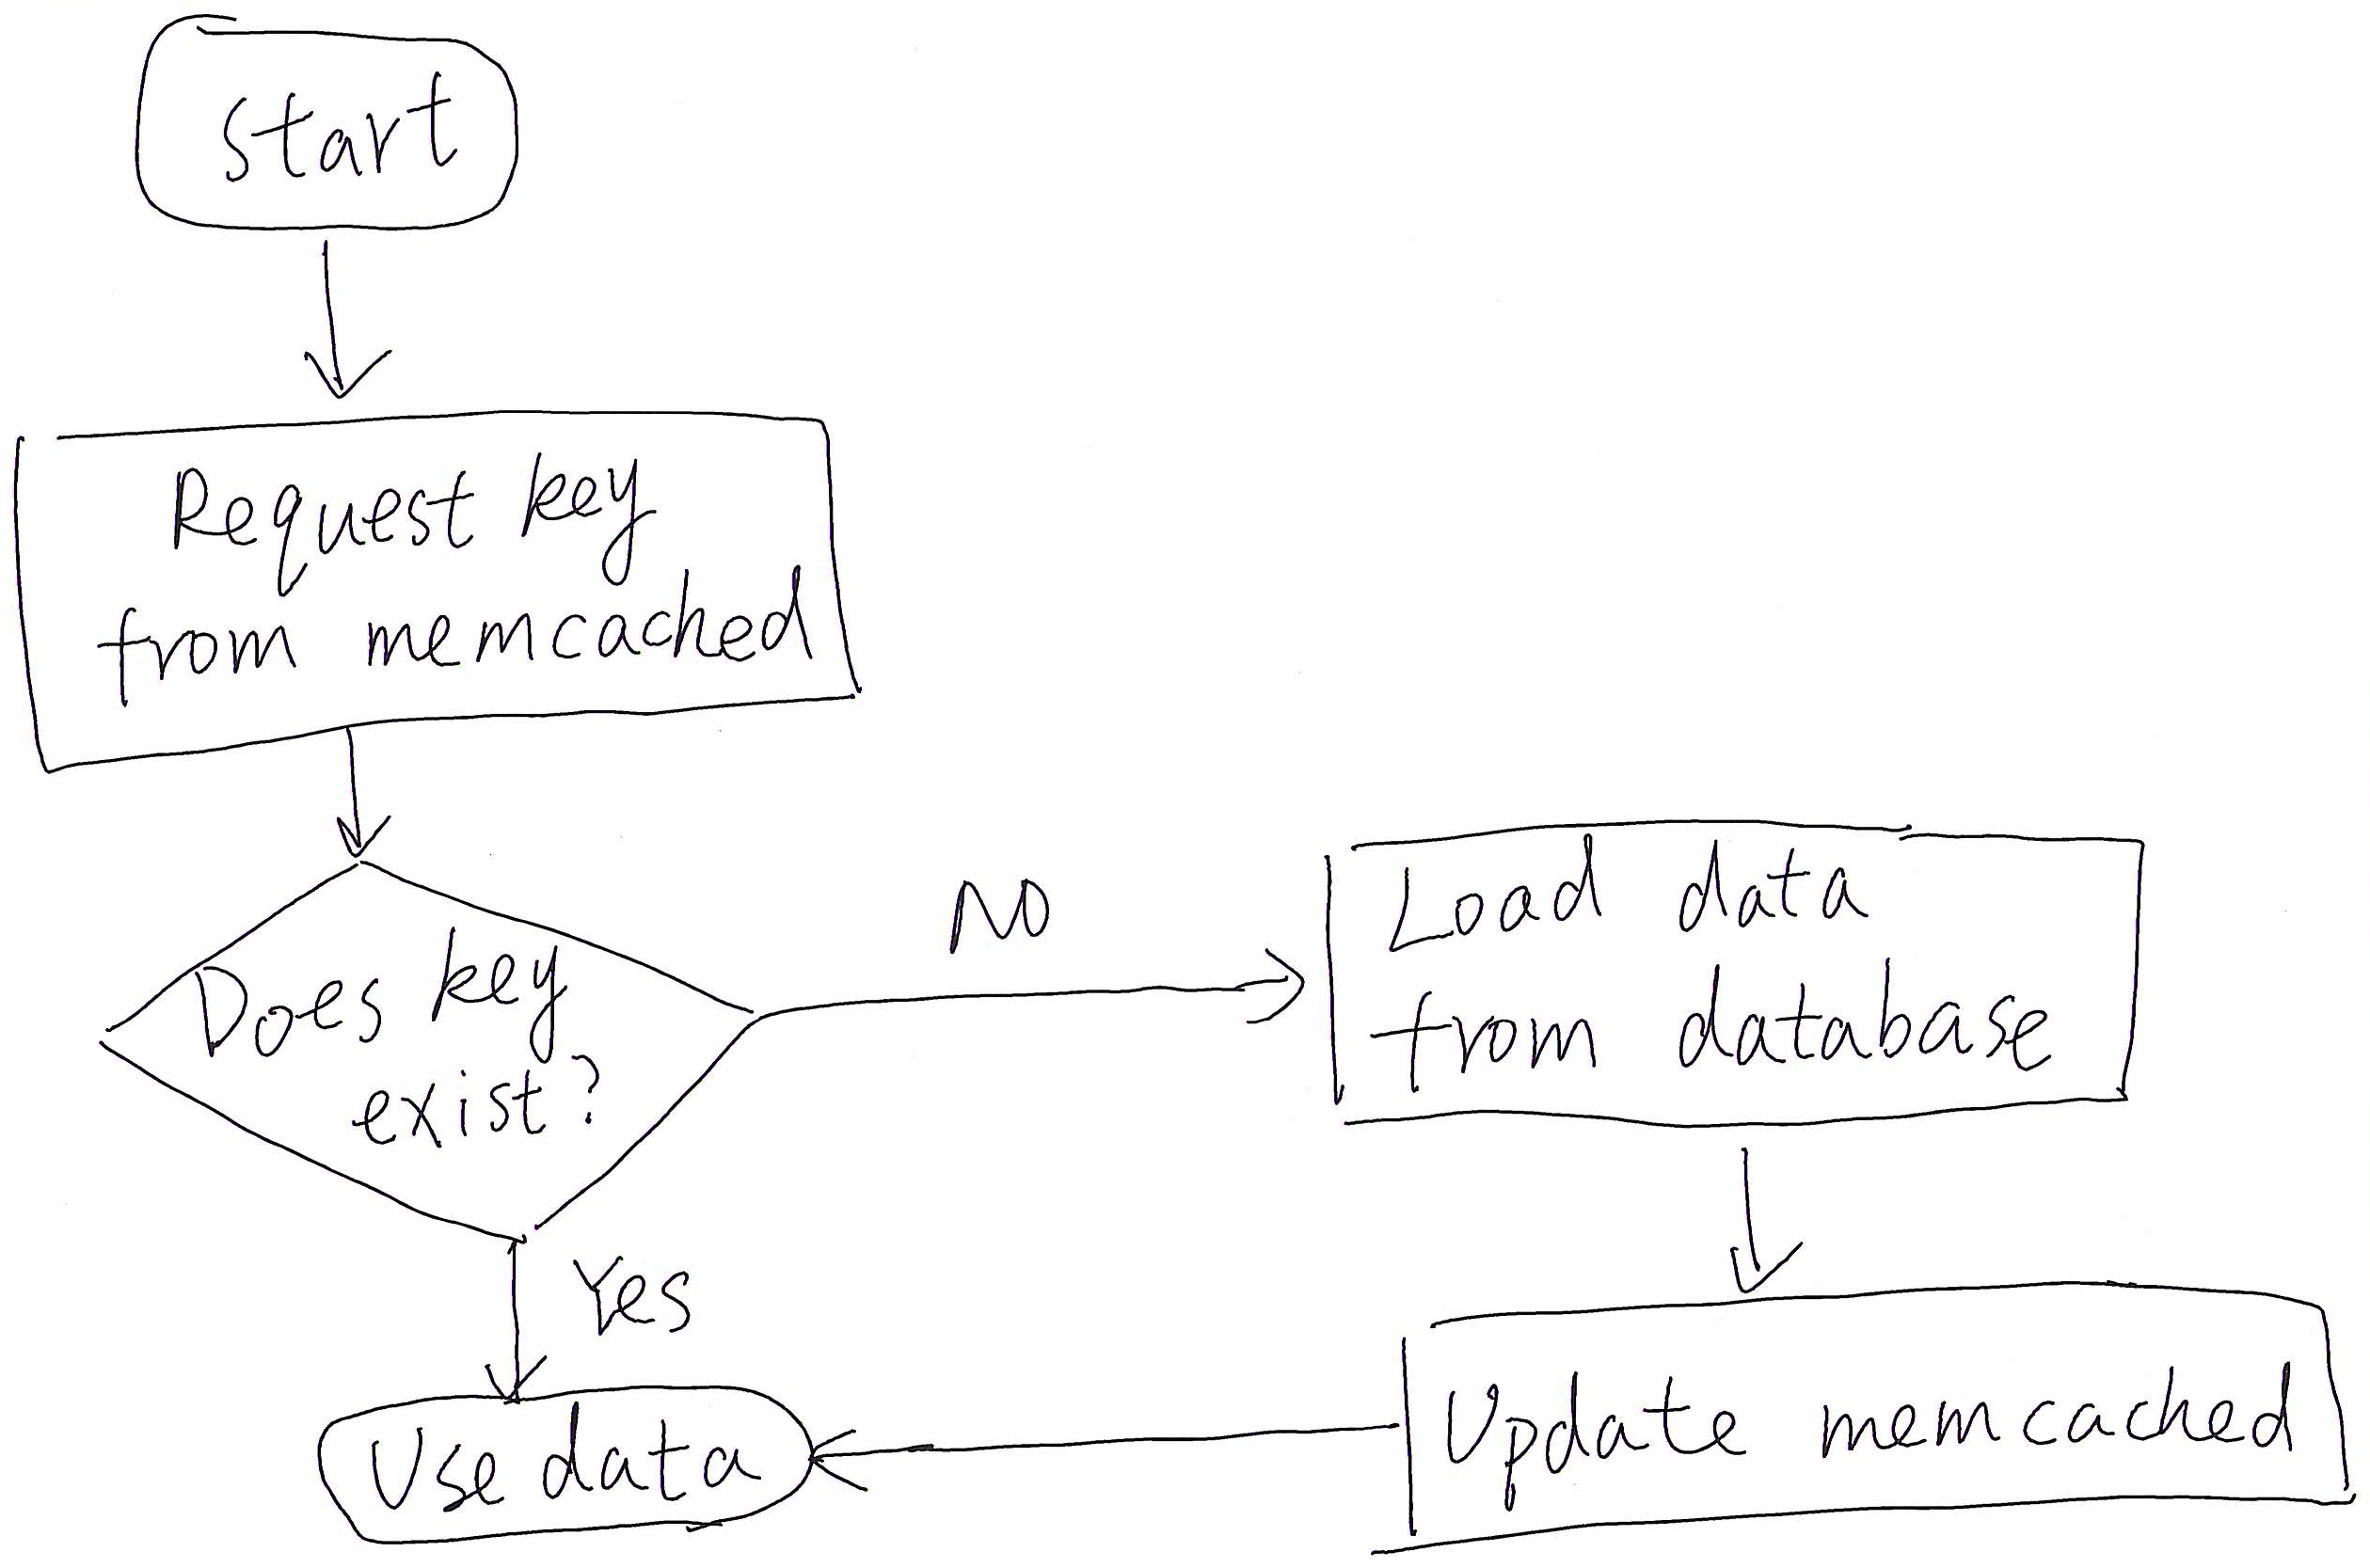 Start
Request key
from memcached
Does key
exist?
NO
Load data
from database
Yes
Update memcached
Use data